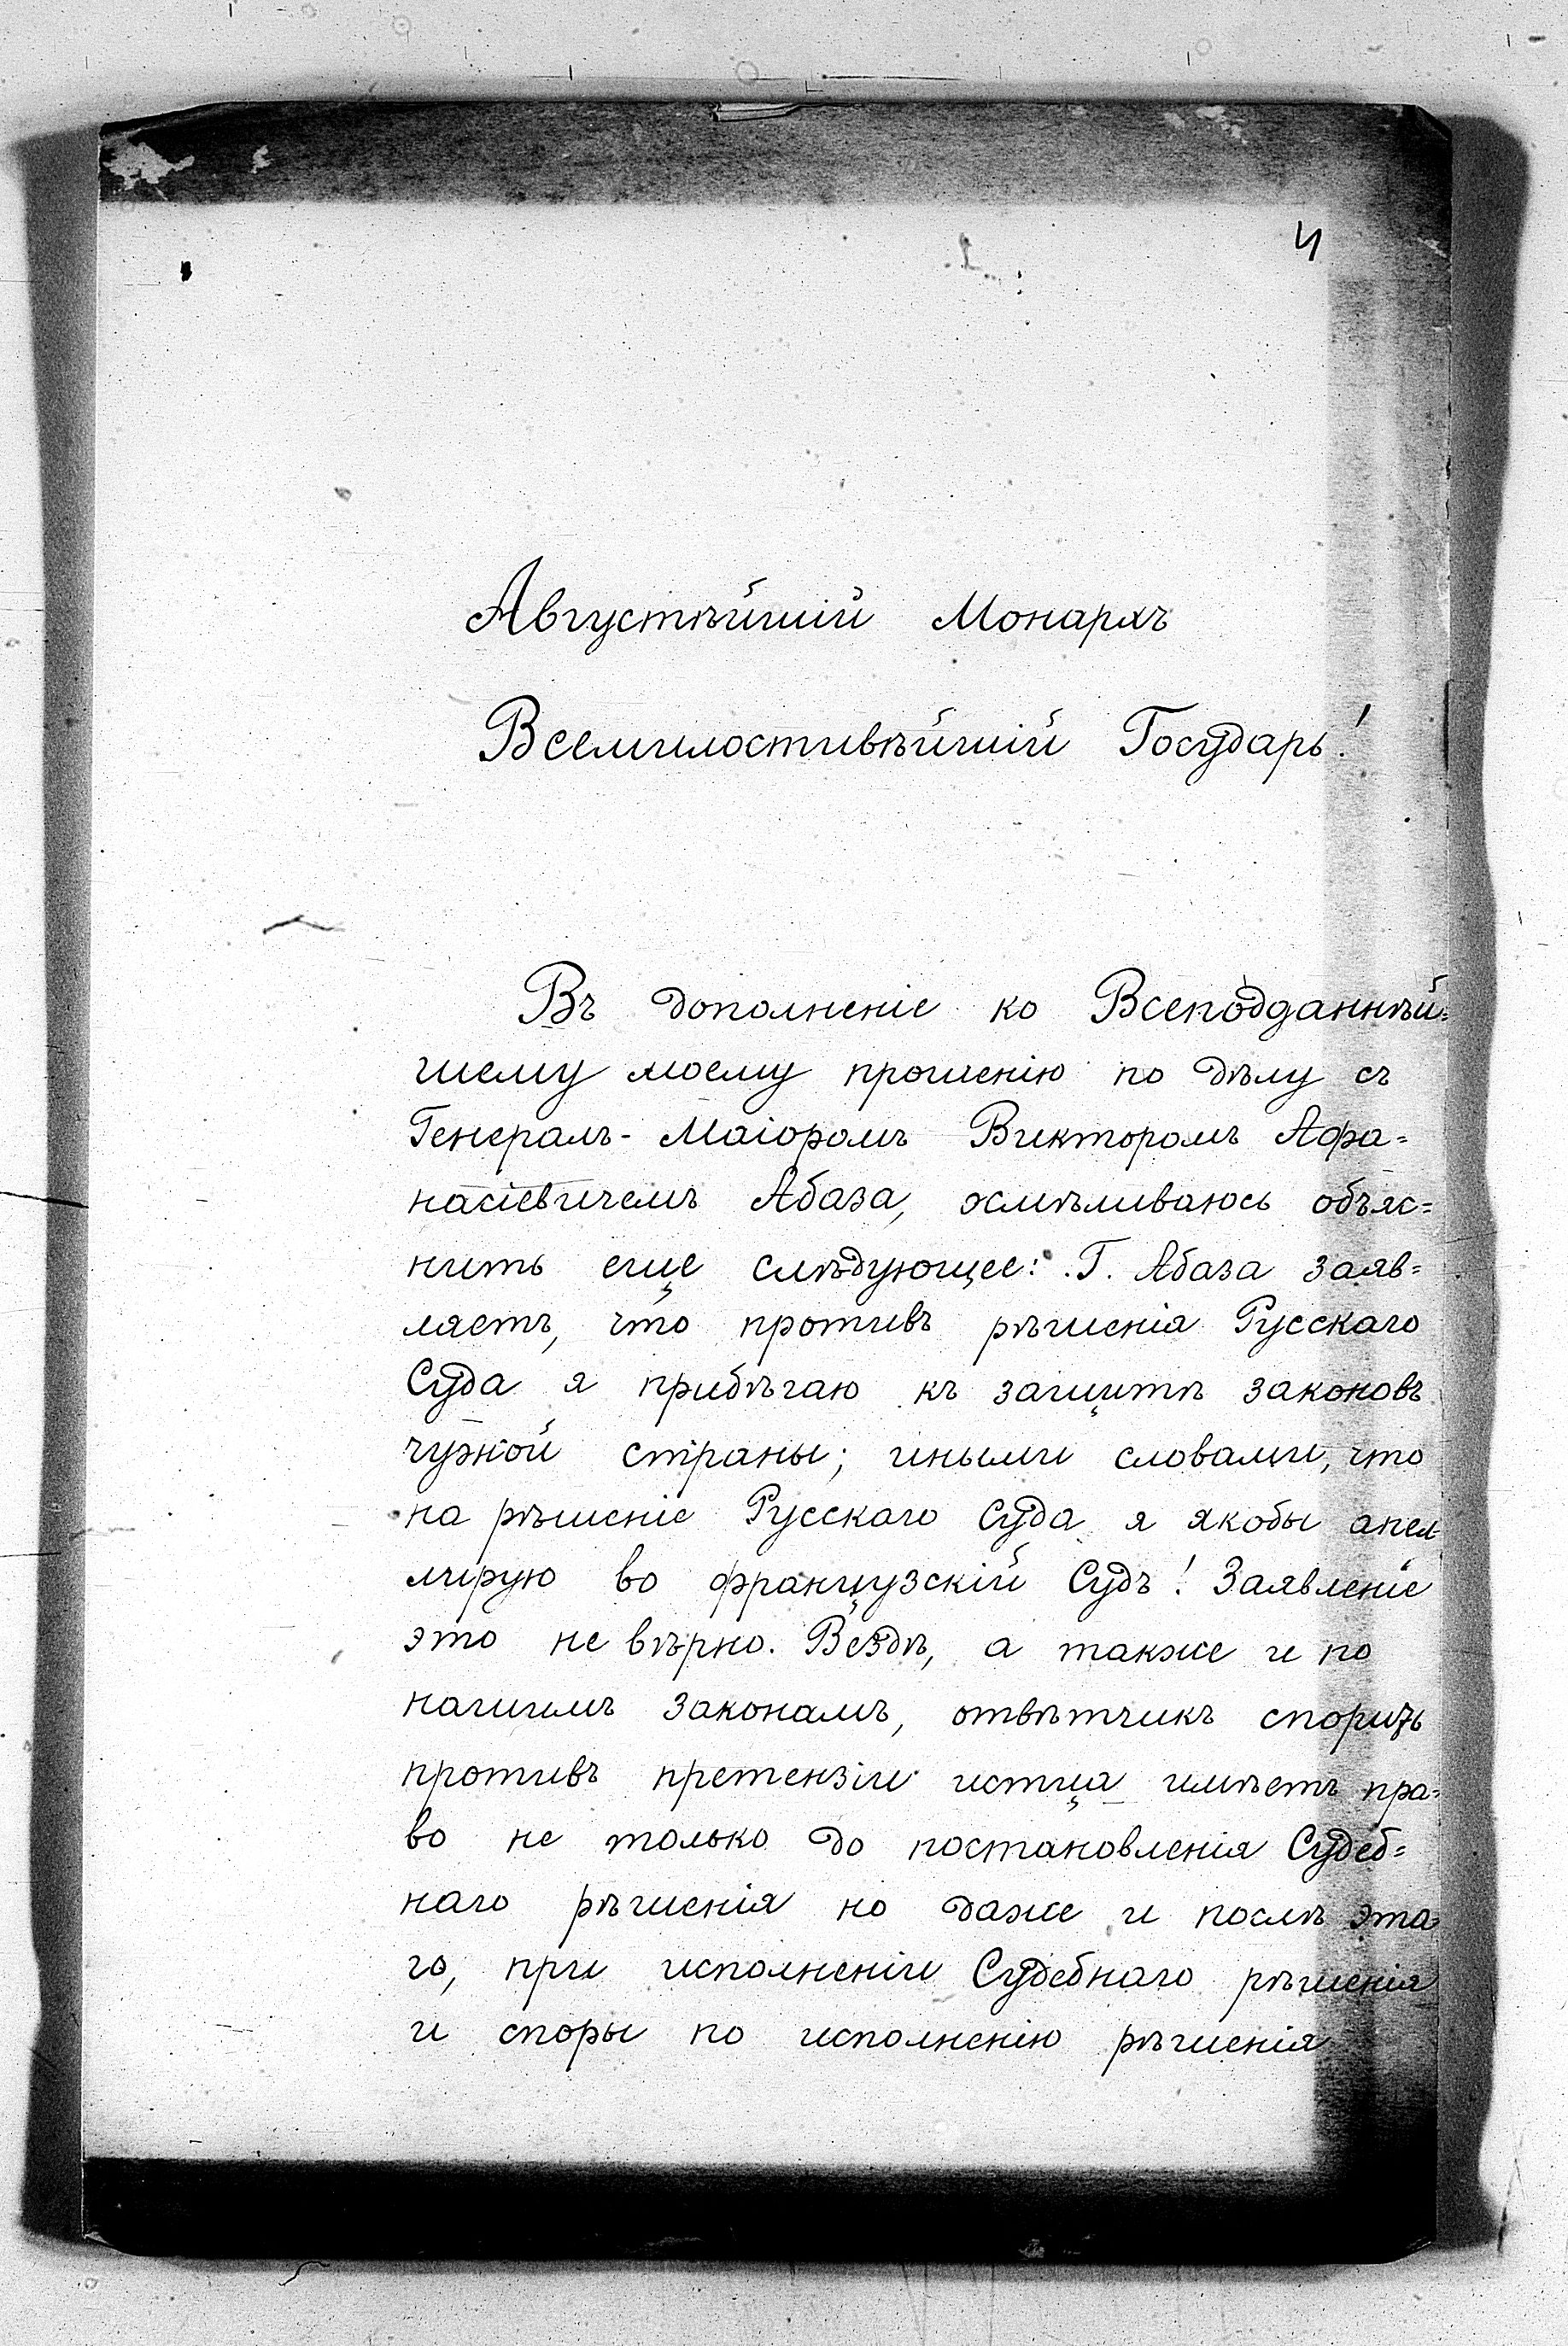 4
Августѣйшій Монархъ
Всемилостивѣйшій Государь!
Въ дополненіе ко Всеподданнѣй=
шему моему прошенію по дѣлу съ
Генералъ-Маіоромъ Викторомъ Афа=
насіевичемъ Абаза, осмѣливаюсь объяс=
нить еще слѣдующее: Г. Абаза заяв=
ляетъ, что противъ рѣшенія Русскаго
Суда я прибѣгаю къ защитѣ законовъ
чужой страны; иными словами, что
на рѣшеніе Русскаго Суда я якобы апел
лирую во французскій Судъ! Заявленіе
это не вѣрно. Вездѣ, а также и по
нашимъ законамъ, отвѣтчикъ спорить
противъ претензіи истца имѣетъ пра=
во не только до постановленія Судеб=
наго рѣшенія но даже и послѣ эта
го, при исполненіи Судебнаго рѣшенія
и споры по исполненію рѣшенія